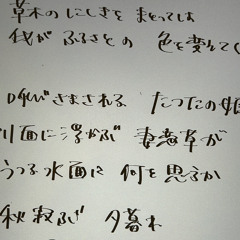 草木の にしきを まとっては
我が ふるさとの 色を変えて
呼びさまされる たつたの姫
川面に浮かぶ 妻恋草が
うつる水面に 何を思うか
秋寂ぶ 夕暮れ